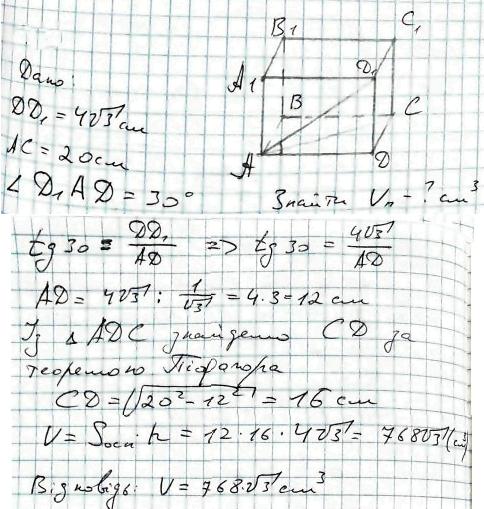 Дано:
DD₁ = 4√3 см
AC = 20 см
∠ D₁AD = 30°
B₁
C₁
A₁
D₁
B
C
A
D
Знайти Vп - ? см³
tg 30 = DD₁/AD => tg 30 = 4√3/AD
AD = 4√3 : 1/√3 = 4·3 = 12 см
Із △ ADC знайдемо CD за
теоремою Піфагора
CD = √20² - 12² = 16 см
V = Sосн·h = 12·16·4√3 = 768√3 (см³)
Відповідь: V = 768·√3 см³